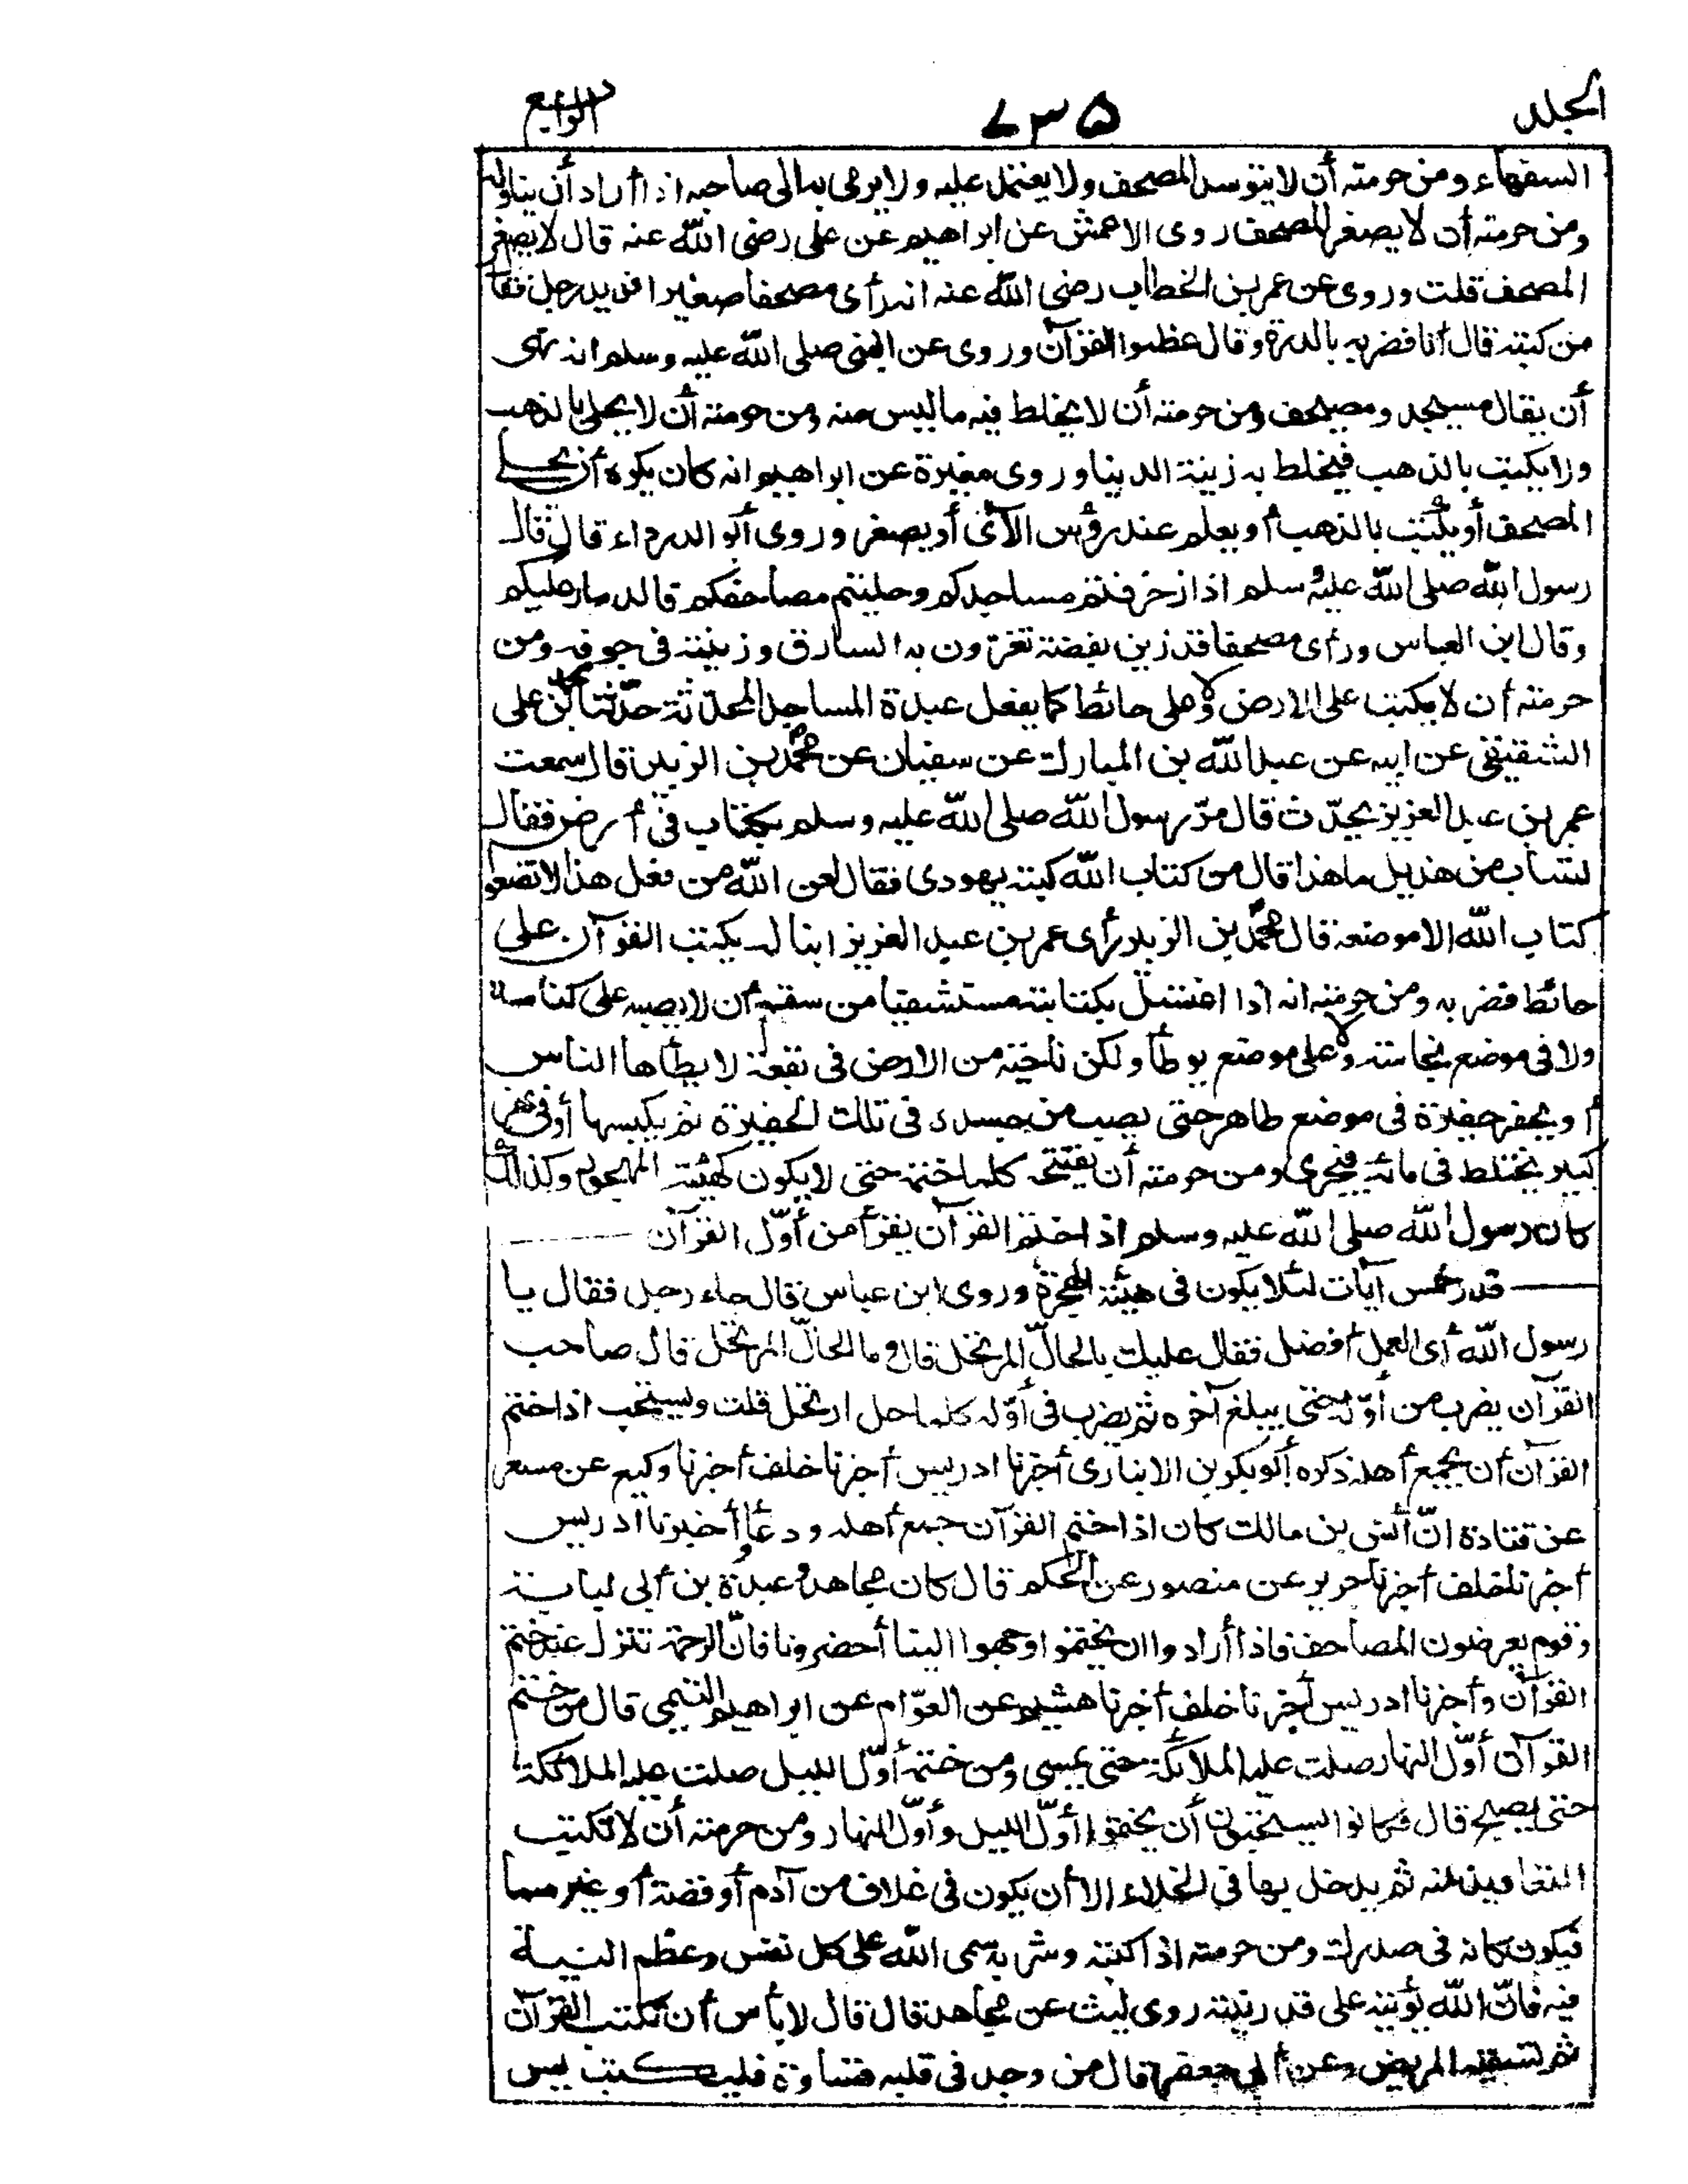 الجلد ٧٣٥ الرابع
السفهاء ومن حرمته أن لا يتوسد المصحف ولا يعتمل عليه ولا يرمى به الى صاحبه اذا أراد أن يناوله
ومن حرمته أن لا يصغر المصحف روى الاعمش عن ابراهيم عن على رضى الله عنه قال لا يصغر
المصحف قلت وروى عن عمر بن الخطاب رضى الله عنه انه رأى مصحفا صغيرا فى يد رجل فقال
من كتبه قال أنا فضربه بالدرة وقال عظموا القرآن وروى عن النبى صلى الله عليه وسلم انه نهى
أن يقال مسيجد ومصيحف ومن حرمته أن لا يخلط فيه ما ليس منه ومن حرمته أن لا يحلى بالذهب
ولا يكتب بالذهب فيخلط به زينة الدنيا وروى مغيرة عن ابراهيم انه كان يكره أن يحلى
المصحف أو يكتب بالذهب أو يعلم عند رؤس الآى أو يصغر وروى أبو الدرداء قال قال
رسول الله صلى الله عليه وسلم اذا زخرفتم مساجدكم وحليتم مصاحفكم فالدمار عليكم
وقال ابن العباس ورأى مصحفا قد زين بفضة تغرون به السارق وزينته فى جوفه ومن
حرمته أن لا يكتب على الارض ولا على حائط كما يفعل عبدة المساجد المحدثة حدثنا محمد بن على
الشقيقى عن ابيه عن عبد الله بن المبارك عن سفيان عن محمد بن الزبير قال سمعت
عمر بن عبد العزيز يحدّث قال مرّ رسول الله صلى الله عليه وسلم بكتاب فى أرض فقال
لشاب من هذيل ما هذا قال من كتاب الله كتبه يهودى فقال لعن الله من فعل هذا لا تضعوا
كتاب الله الا موضعه قال محمد بن الزبير رأى عمر بن عبد العزيز ابنا له يكتب القرآن على
حائط فضربه ومن حرمته انه اذا اغتسل بكتابته مستشفيا من سقم أن لا يصبه على كناسة
ولا فى موضع نجاسته ولا على موضع يوطأ ولكن ناحية من الارض فى بقعة لا يطأها الناس
أو يحفر حفيرة فى موضع طاهر حتى يصب من جسده فى تلك الحفيرة ثم يكبسها أو فى نهر
كبير يختلط فى مائه فيجرى ومن حرمته أن يفتتحه كلما ختمه حتى لا يكون كهيئة المهجور وكذلك
كان رسول الله صلى الله عليه وسلم اذا ختم القرآن يقرأ من أوّل القرآن
قدر خمس آيات لئلا يكون فى هيئة الهجرة وروى ابن عباس قال جاء رجل فقال يا
رسول الله أى العمل أفضل فقال عليك بالحالّ المرتحل قال وما الحالّ المرتحل قال صاحب
القرآن يضرب من أوّله حتى يبلغ آخره ثم يضرب فى أوّله كلما حل ارتحل قلت ويستحب اذا ختم
القرآن أن يجمع أهله ذكره أبو بكر بن الانبارى أخبرنا ادريس أخبرنا خلف أخبرنا وكيع عن مسعر
عن قتادة انّ أنس بن مالك كان اذا ختم القرآن جمع أهله ودعا أخبرنا ادريس
أخبرنا خلف أخبرنا جرير عن منصور عن الحكم قال كان مجاهد وعبدة بن أبى لبابة
وقوم يعرضون المصاحف فاذا أرادوا ان يختموا وجهوا الينا أحضرونا فانّ الرحمة تنزل عند ختم
القرآن وأخبرنا ادريس أخبرنا خلف أخبرنا هشيم عن العوّام عن ابراهيم التيمى قال من ختم
القرآن أوّل النهار صلت عليه الملائكة حتى يمسى ومن ختمه أوّل الليل صلت عليه الملائكة
حتى يصبح قال فكانوا يستحبون أن يختموا أوّل الليل وأوّل النهار ومن حرمته أن لا تكتب
التعاويذ منه ثم يدخل بها فى الخلاء الا أن يكون فى غلاف من آدم أو فضة أو غيرهما
فيكون كانه فى صدرك ومن حرمته اذا كتبه وشربه سمى الله على كل نفس وعظم النية
فيه فانّ الله يؤتيه على قدر نيته روى ليث عن مجاهد قال قال لا بأس أن تكتب القرآن
ثم تسقيه المريض وعن أبى جعفر قال من وجد فى قلبه قساوة فليكتب يس